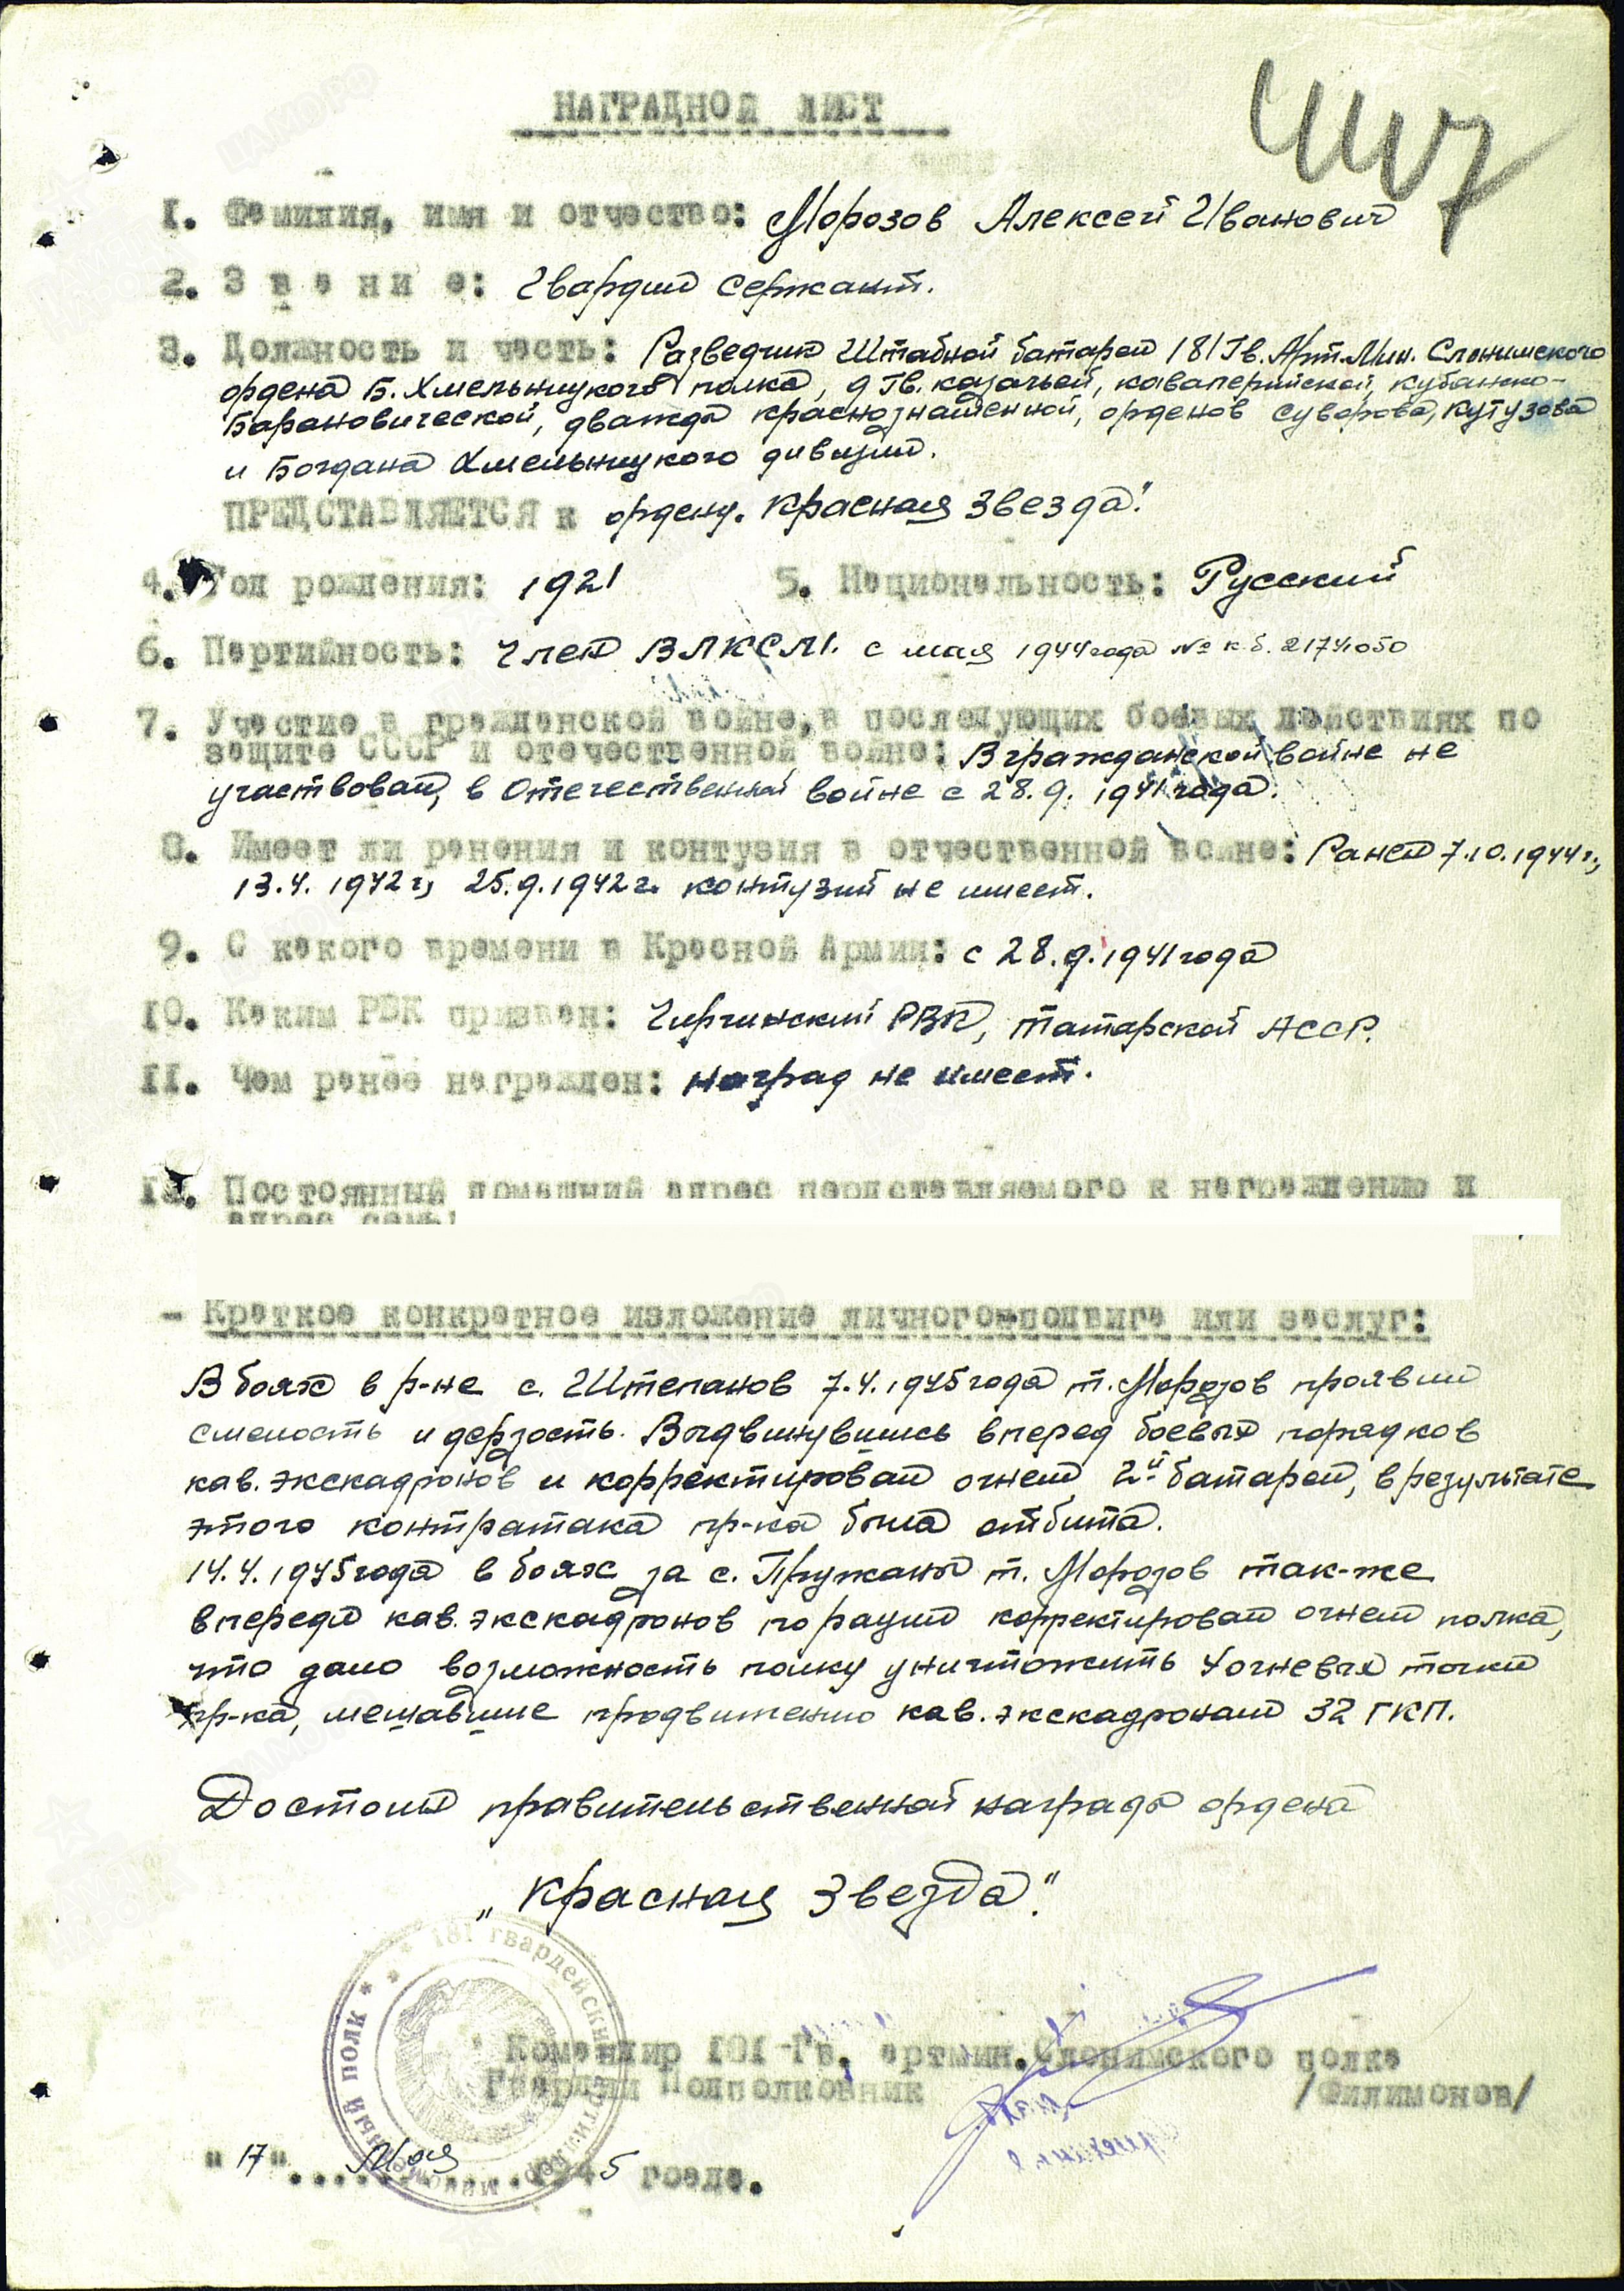 НАГРАДНОЙ ЛИСТ
1. Фамилия, имя и отчество: Морозов Алексей Иванович
2. Звание: Гвардии сержант.
3. Должность и часть: Разведчик Штабной батареи 181 Гв. Арт.Мин. Слонимского
ордена Б. Хмельницкого полка, 9 Гв. казачьей, кавалерийской, кубанско-
Барановической, дважды краснознаменной, орденов Суворова, Кутузова
и Богдана Хмельницкого дивизии.
ПРЕДСТАВЛЯЕТСЯ к ордену. Красная Звезда"
4. Год рождения: 1921 5. Национальность: Русский
6. Партийность: Член ВЛКСМ. с мая 1944 года № к.б. 21741050
7. Участие в гражданской войне, в последующих боевых действиях по
защите СССР и отечественной войне: В гражданской войне не
участвовал, в Отечественной войне с 28.9. 1941 года.
8. Имеет ли ранения и контузия в отчественной войне: Ранен 7.10.1944 г.,
13.4. 1942 г, 25.9.1942 г. контузий не имеет.
9. С какого времени в Красной Армии: с 28.9.1941 года
10. Каким РВК призван: РВК, Татарской АССР.
11. Чем ранее награжден: наград не имеет.
12. Постоянный домашний адрес пердставляемого к награждению и
адрес семьи
- Краткое конкретное изложение личного подвига или заслуг:
В боях в р-не с. Штепанов 7.4.1945 года т. Морозов проявил
смелость и дерзость. Выдвинувшись вперед боевых порядков
кав. экскадронов и корректировал огнем 2й батареи, в результате
этого контратака пр-ка была отбита.
14.4.1945 года в боях за с. Пружаны т. Морозов так-же
впереди кав. экскадронов по рации корректировал огнем полка,
что дало возможность полку уничтожить 4 огневых точки
пр-ка, мешавшие продвижению кав. экскадронам 32 ГКП.
Достоин правительственной награды ордена
„Красная Звезда".
181 гвардейский артиллер. минометный полк
Командир 181 Гв. артмин. Слонимского полка
Гвардии Подполковник /Филимонов/
"17" Мая 1945 гоада.